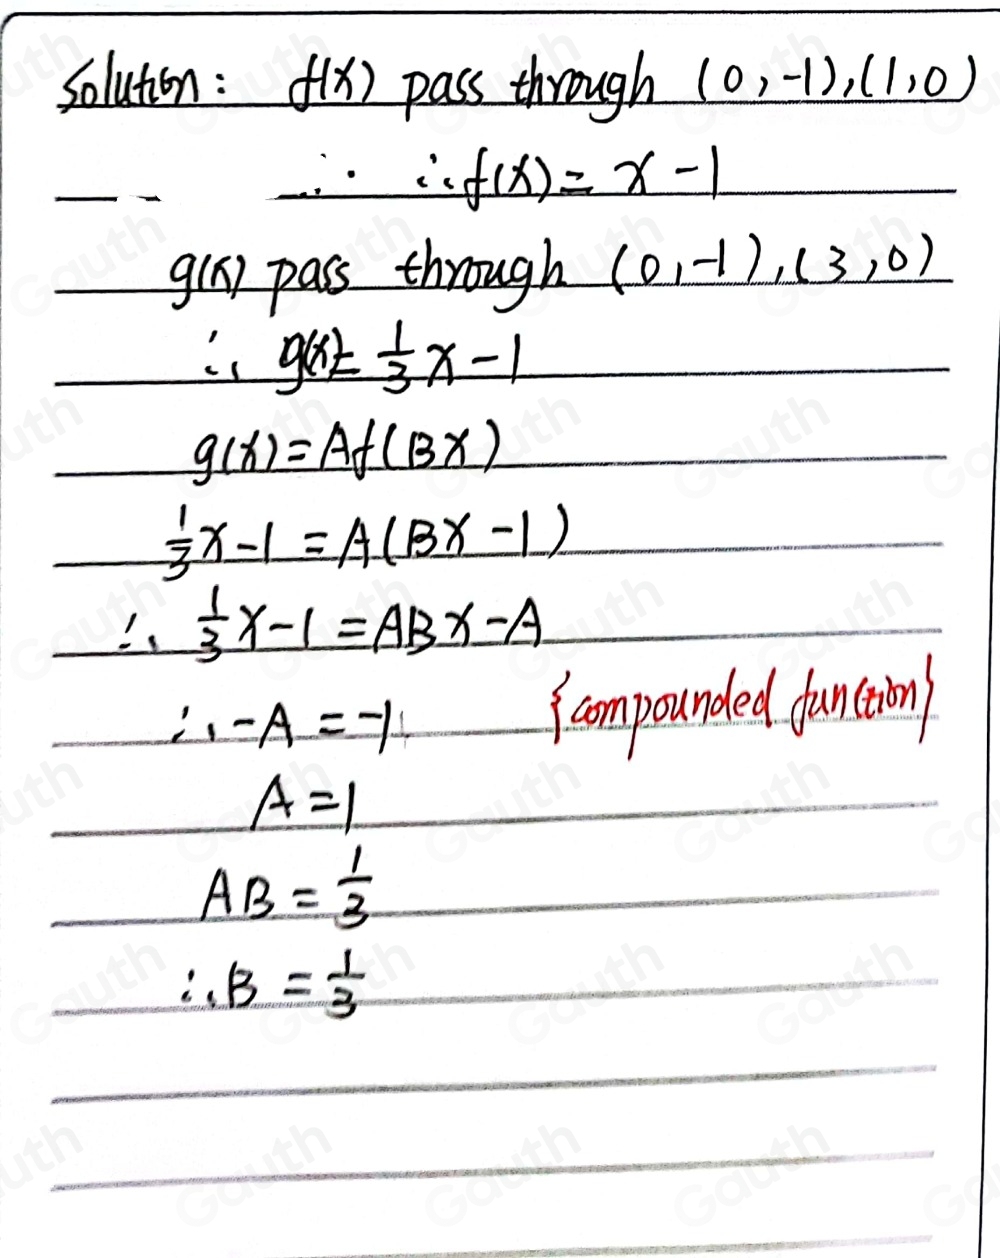 Solution: f(x) pass through (0,-1),(1,0)
∴ f(x) = x - 1
g(x) pass through (0,-1),(3,0)
∴ g(x) = 1/3 x - 1
g(x) = Af(Bx)
1/3 x - 1 = A(Bx - 1)
∴ 1/3 x - 1 = ABx - A
∴ -A = -1 {compounded function}
A = 1
AB = 1/3
∴ B = 1/3
Gauth